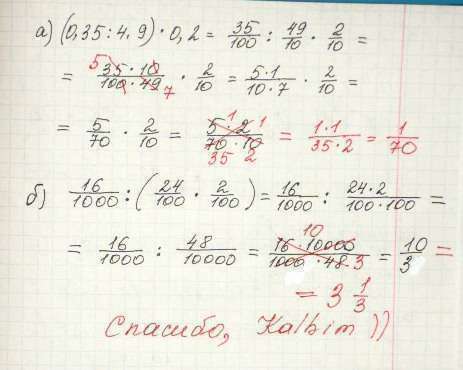 а) (0,35 : 4,9) · 0,2 = 35/100 : 49/10 · 2/10 =
= 5 35·10/100·49 7 · 2/10 = 5·1/10·7 · 2/10 =
= 5/70 · 2/10 = 1 1 5·2/70·10 35 2 = 1·1/35·2 = 1/70
б) 16/1000 : (24/100 · 2/100) = 16/1000 : 24·2/100·100 =
= 16/1000 : 48/10000 = 10 16·10000/1000·48 3 = 10/3 =
= 3 1/3
Спасибо, Kalbim ))